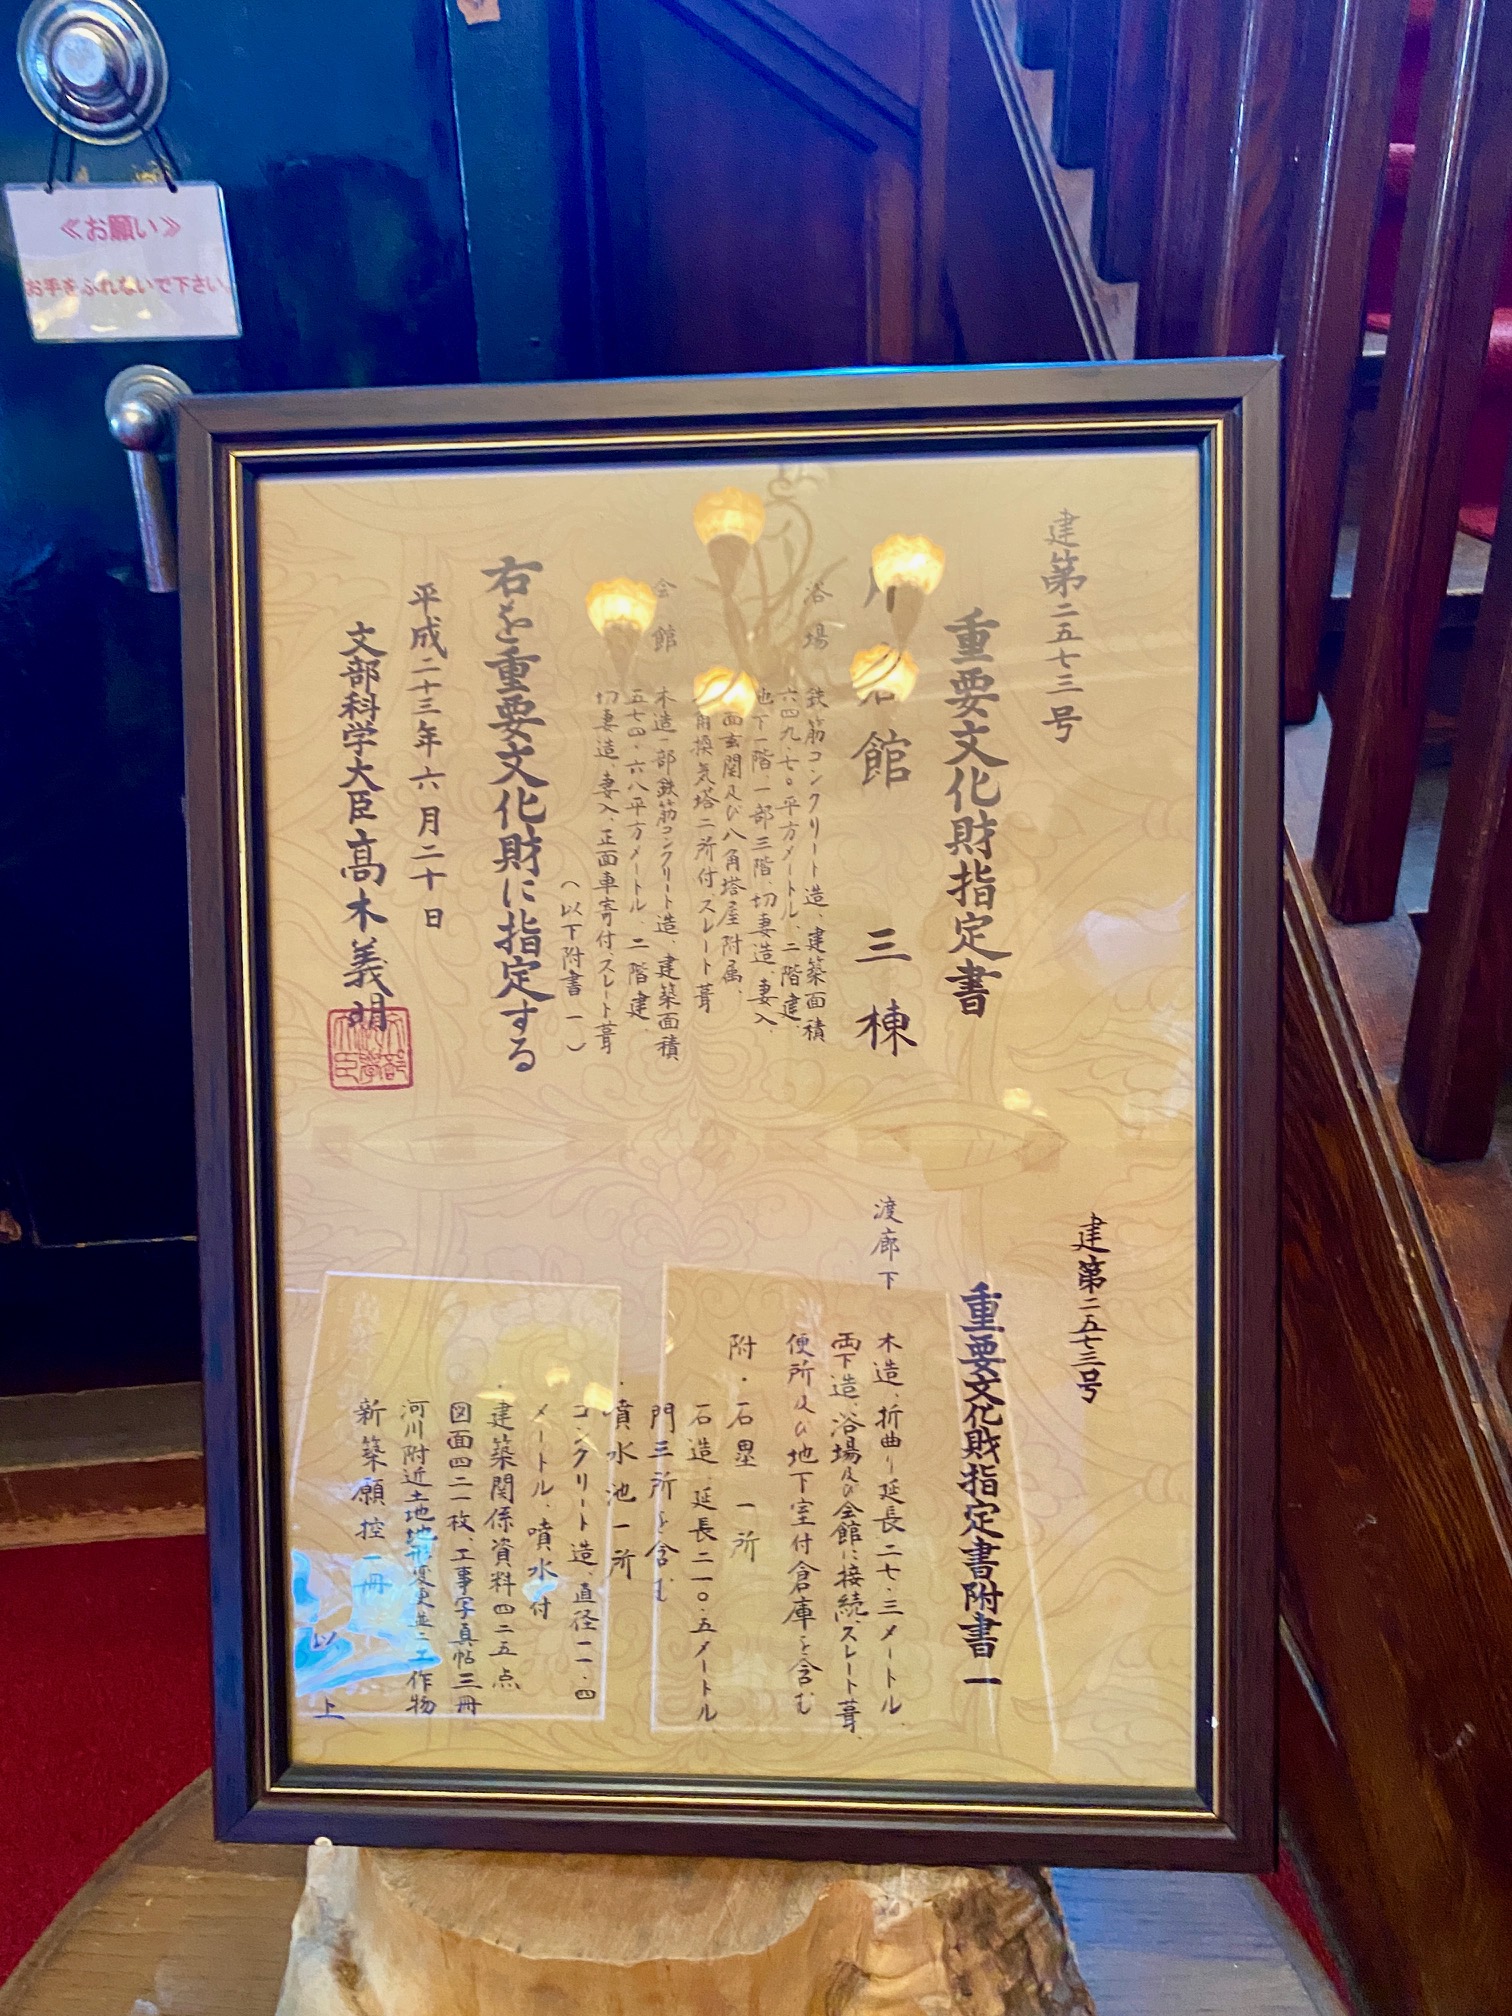 ≪お願い≫
お手をふれないで下さい。
建第二五七三号
重要文化財指定書
館 三棟
浴場
鉄筋コンクリート造、建築面積
六四九・七〇平方メートル、二階建、
地下一階、一部三階、切妻造、妻入、
面玄関及び八角塔屋附属、
角換気塔二所付、スレート葺
会館
木造一部鉄筋コンクリート造、建築面積
五七四・六八平方メートル、二階建
切妻造、妻入、正面車寄付、スレート葺
（以下附書一）
右を重要文化財に指定する
平成二十三年六月二十日
文部科学大臣 髙木義明
建第二五七三号
重要文化財指定書附書一
渡廊下
木造、折曲り延長二七・三メートル、
両下造、浴場及び会館に接続、スレート葺、
便所及び地下室付倉庫を含む
附・石塁 一所
石造、延長二一〇・五メートル、
門三所を含む
・噴水池 一所
コンクリート造、直径一一・四
メートル、噴水付
・建築関係資料四二五点
図面四二一枚、工事写真帖三冊
河川附近土地地形変更並ニ工作物
新築願控一冊
以上